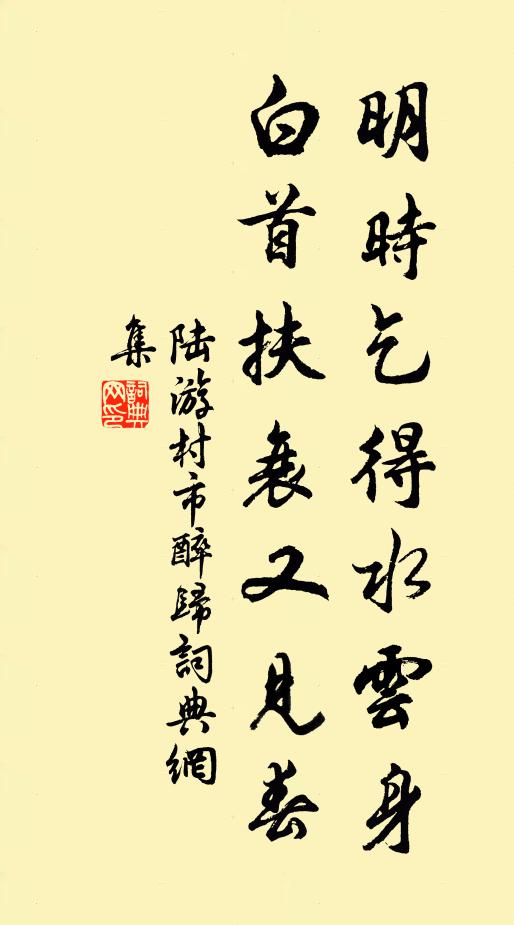 明時乞得水雲身
白首扶衰又見春
陸游村市醉歸詞典網
集
詞典網印